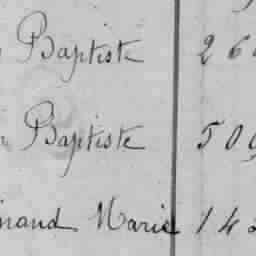 Baptiste 26
Baptiste 509
Marie 142